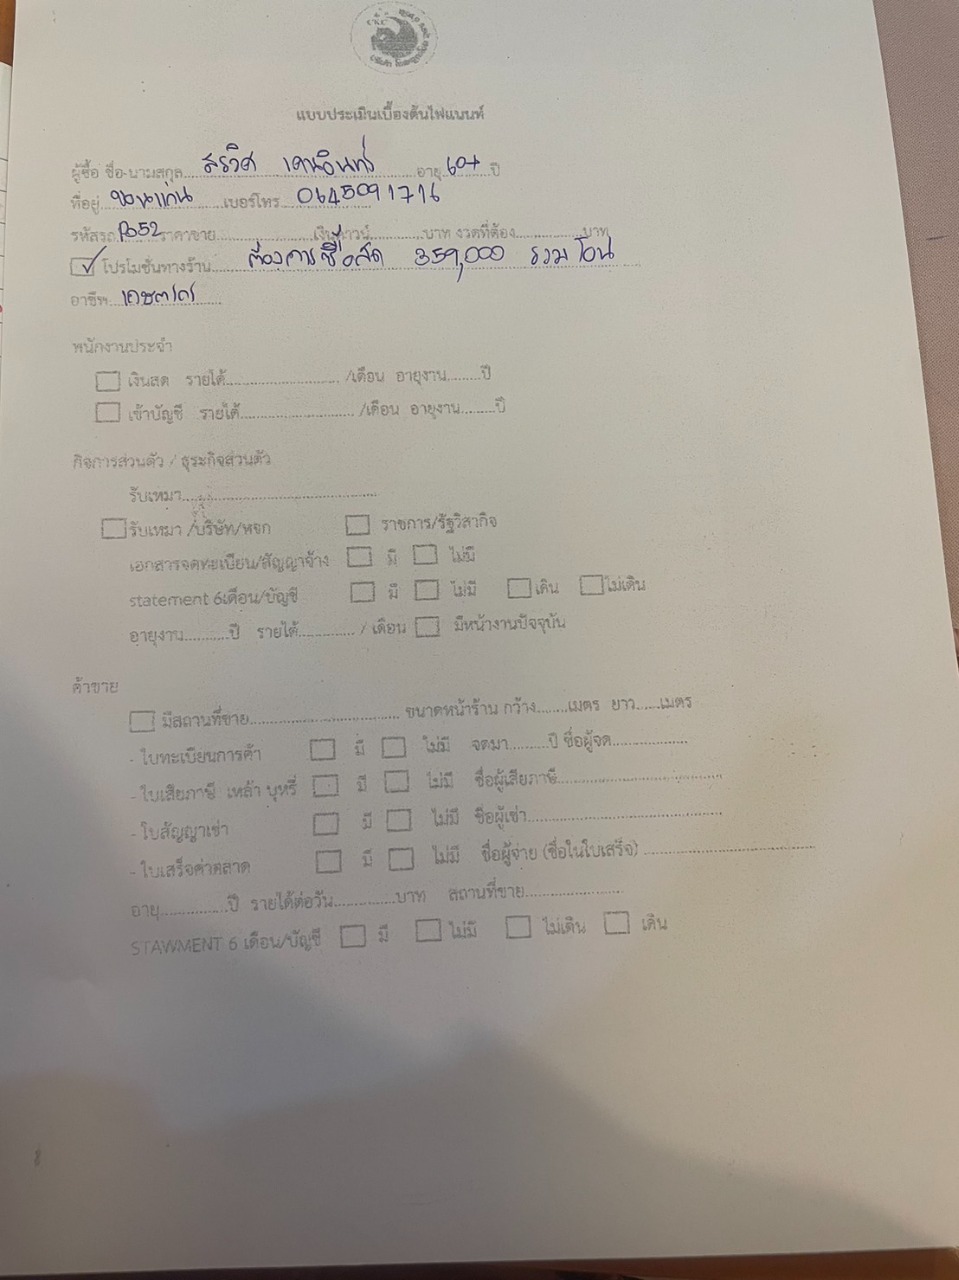 CKC
แบบประเมินเบื้องต้นไฟแนนท์
ผู้ซื้อ ชื่อ-นามสกุล สรวิศ เคนอินทร์ อายุ 60+ ปี
ที่อยู่ ขอนแก่น เบอร์โทร 0645091716
รหัสรถ P052 ราคาขาย............เงินดาวน์............บาท งวดที่ต้อง............บาท
☑ โปรโมชั่นทางร้าน ต้องการซื้อสด 359,000 รวมโอน
อาชีพ เกษตรกร
พนักงานประจำ
☐ เงินสด รายได้............/เดือน อายุงาน........ปี
☐ เข้าบัญชี รายได้............/เดือน อายุงาน........ปี
กิจการส่วนตัว / ธุระกิจส่วนตัว
รับเหมา............
☐ รับเหมา /บริษัท/หจก ☐ ราชการ/รัฐวิสากิจ
เอกสารจดทะเบียน/สัญญาจ้าง ☐ มี ☐ ไม่มี
statement 6เดือน/บัญชี ☐ มี ☐ ไม่มี ☐ เดิน ☐ ไม่เดิน
อายุงาน..........ปี รายได้............ / เดือน ☐ มีหน้างานปัจจุบัน
ค้าขาย
☐ มีสถานที่ขาย............ ขนาดหน้าร้าน กว้าง.......เมตร ยาว......เมตร
- ใบทะเบียนการค้า ☐ มี ☐ ไม่มี จดมา.........ปี ชื่อผู้จด............
- ใบเสียภาษี เหล้า บุหรี่ ☐ มี ☐ ไม่มี ชื่อผู้เสียภาษี............
- ใบสัญญาเช่า ☐ มี ☐ ไม่มี ชื่อผู้เช่า............
- ใบเสร็จค่าตลาด ☐ มี ☐ ไม่มี ชื่อผู้จ่าย (ชื่อในใบเสร็จ) ............
อายุ............ปี รายได้ต่อวัน............บาท สถานที่ขาย............
STAWMENT 6 เดือน/บัญชี ☐ มี ☐ ไม่มี ☐ ไม่เดิน ☐ เดิน